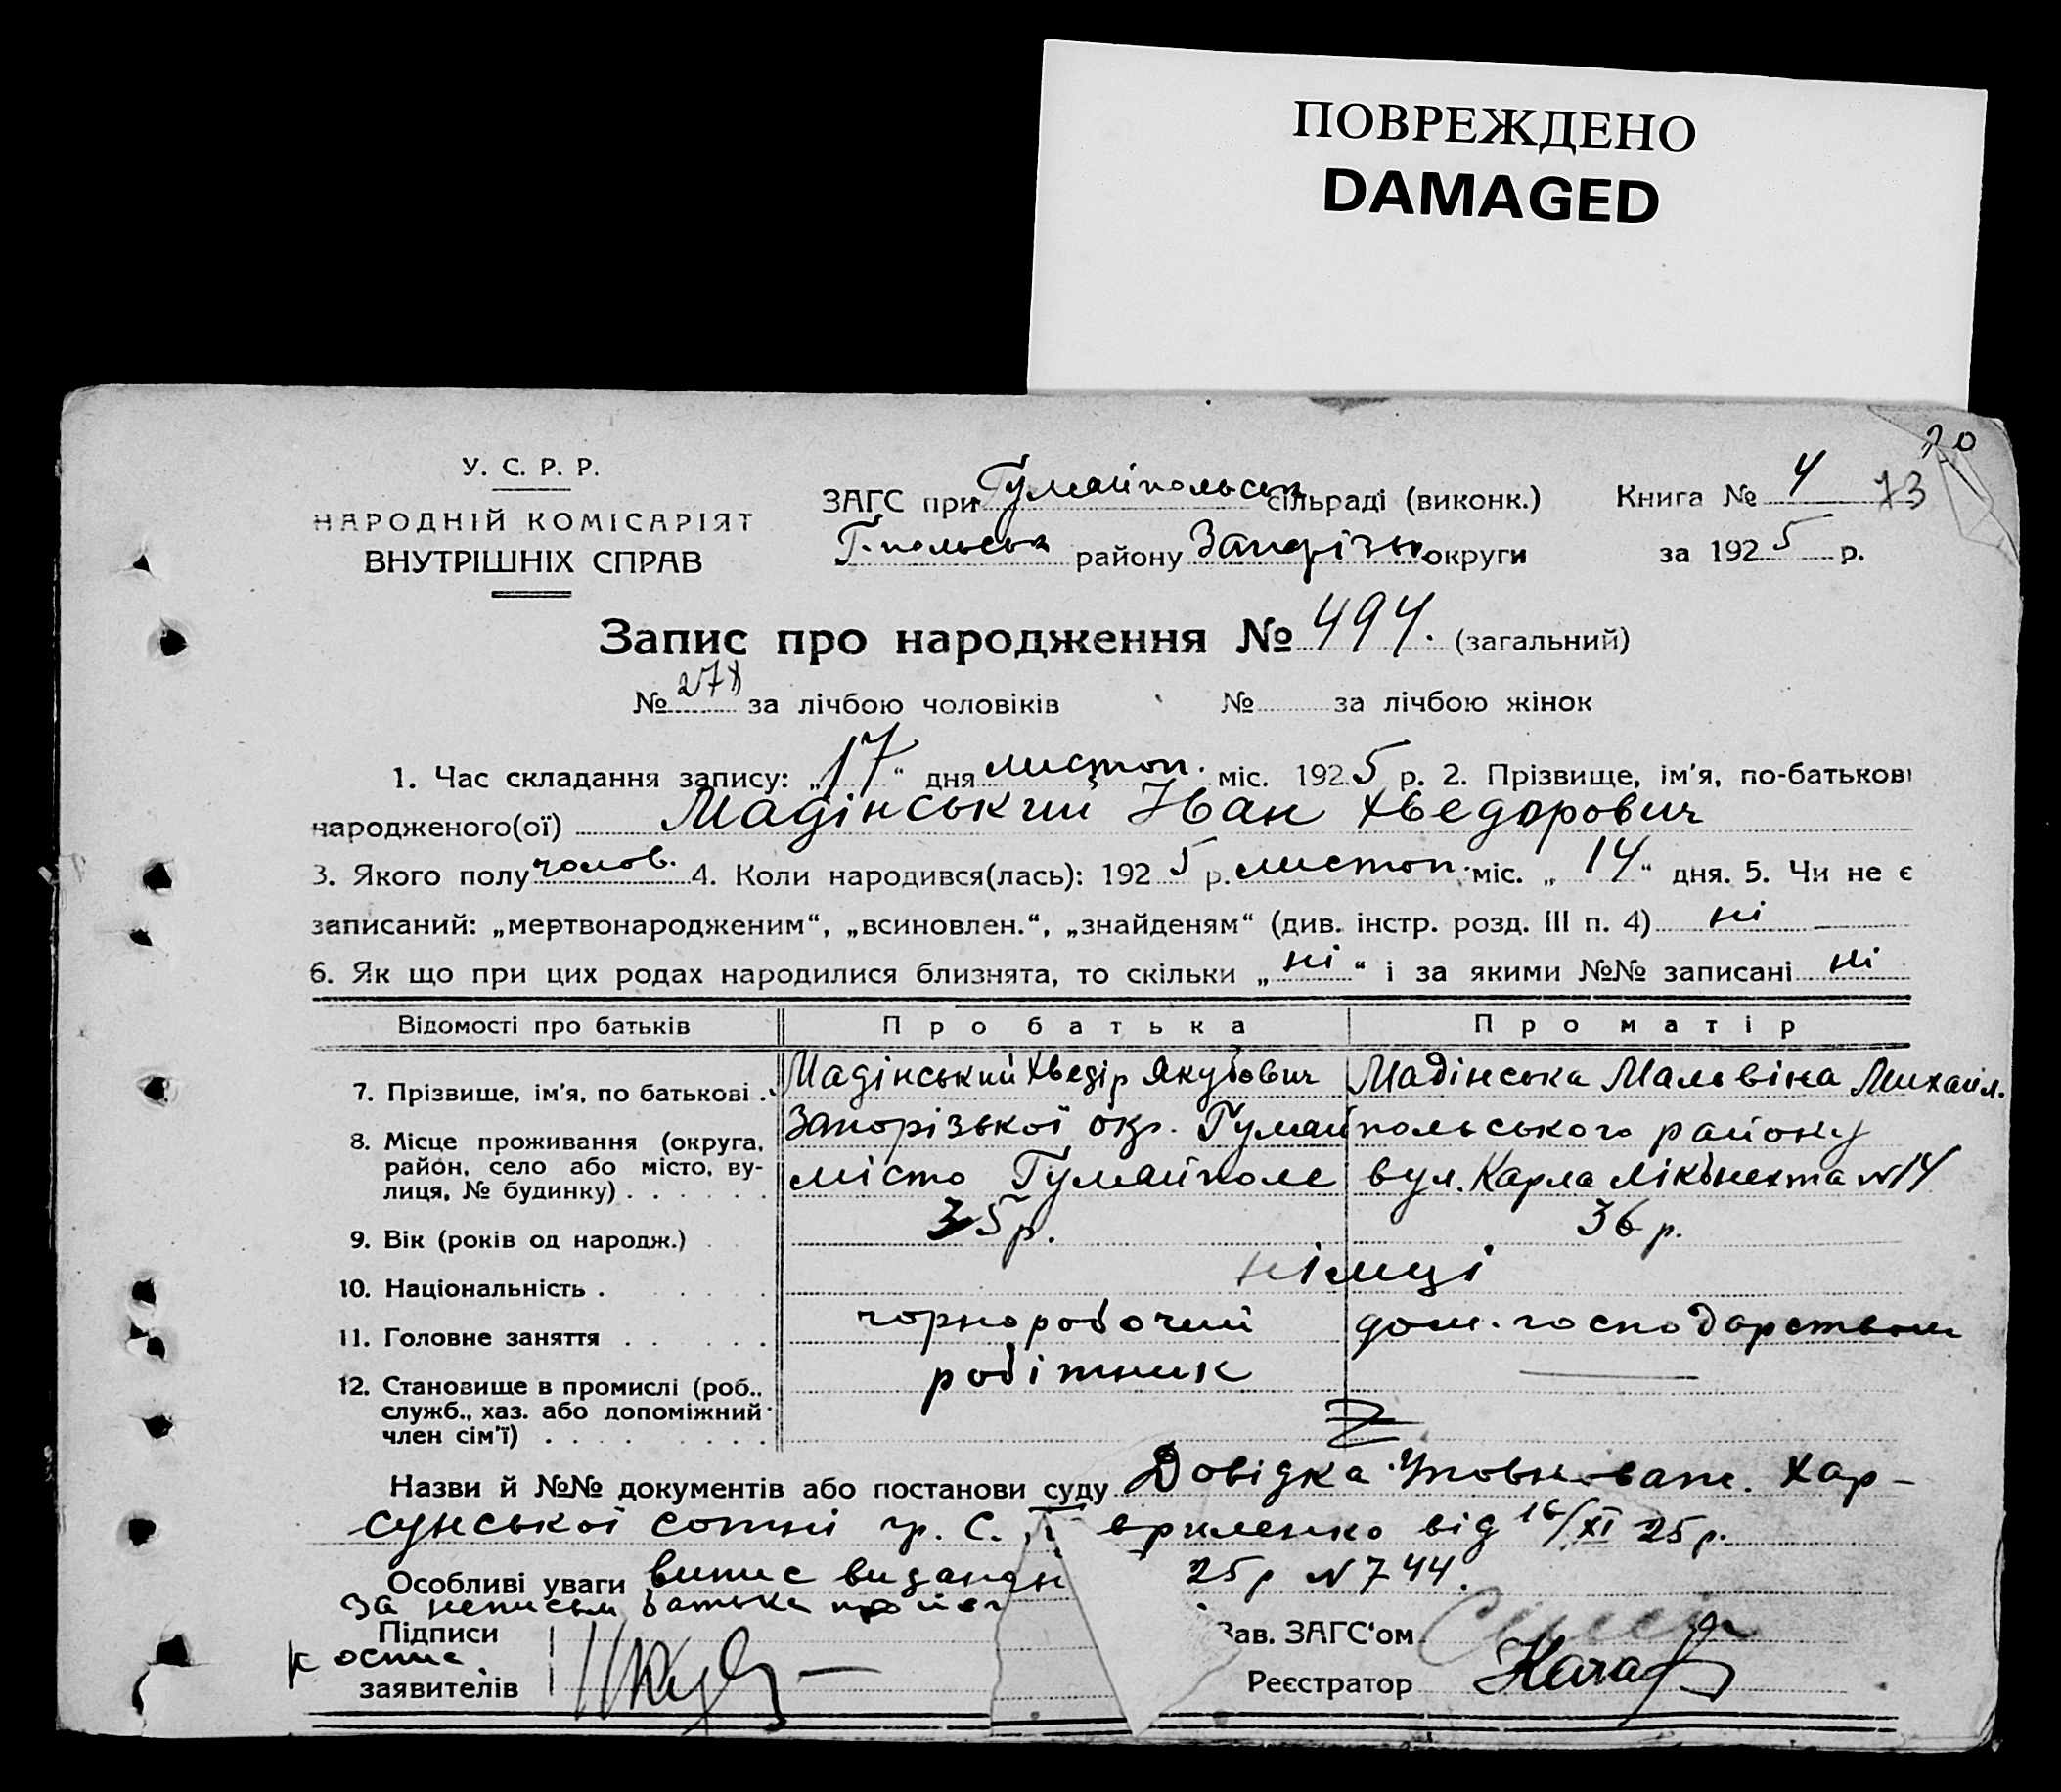 ПОВРЕЖДЕНО
DAMAGED
20
У. С. Р. Р.
НАРОДНІЙ КОМІСАРІЯТ
ВНУТРІШНІХ СПРАВ
ЗАГС при Гуляйпольськ сільраді (виконк.)
Книга № 4 73
Г.польськ район у Запоріз округи
за 1925 р.
Запис про народження № 494. (загальний)
№ 278 за лічбою чоловіків № за лічбою жінок
1. Час складання запису: „17“ дня листоп. міс. 1925 р. 2. Прізвище, ім'я, по-батькові
народженого(ої) Мадінський Іван Хведорович
3. Якого полу чолов. 4. Коли народився(лась): 1925 р. листоп. міс. „14“ дня. 5. Чи не є
записаний: „мертвонародженим“, „всиновлен.“, „знайденям“ (див. інстр. розд. III п. 4) ні
6. Як що при цих родах народилися близнята, то скільки „ні“ і за якими №№ записані ні
Відомості про батьків Про батька Про матір
7. Прізвище, ім'я, по батькові . Мадінський Хведір Якубович Мадінська Мальвіна Михайл.
8. Місце проживання (округа, Запорізької окр. Гуляйпольського району
район, село або місто, ву-
лиця, № будинку) . . . . . . місто Гуляйполе вул. Карла Лікбнехта №14
9. Вік (років од народж.) . . 35 р. 36 р.
10. Національність . . . . . німці
11. Головне заняття . . . . . чорноробочий дом. господарством
12. Становище в промислі (роб., робітник —
служб., хаз. або допоміжний
член сім'ї) . . . . . . . .
Назви й №№ документів або постанови суду Довідка Уповноваж. Хар-
сунської сотні гр. С. вриленко від 16/XI 25 р.
Особливі уваги випис видан 25 р №744.
За неписьм батька
Підписи Зав. ЗАГС'ом
заявителів Реєстратор